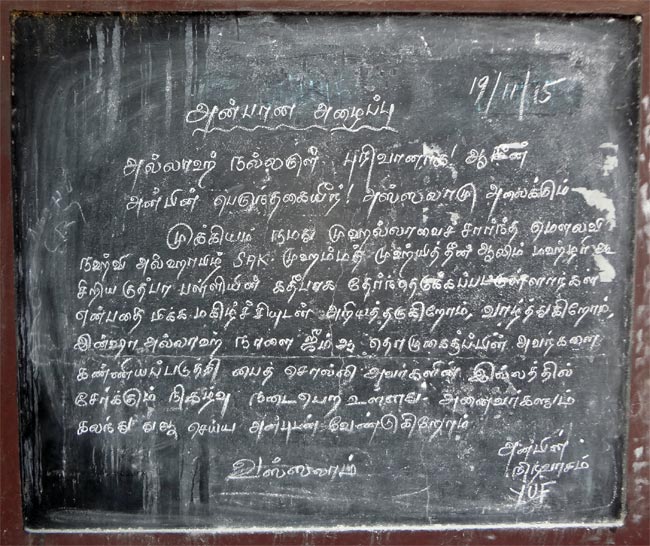 19/11/15
அன்பான அழைப்பு
அல்லாஹ் நல்லருள் புரிவானாக! ஆமீன்
அன்பின் பெருந்தகையீர்! அஸ்ஸலாமு அலைக்கும்
முக்கியம் நமது முஹல்லாவைச் சார்ந்த மௌலவி
நஹ்வி அல்ஹாபிழ் S.A.K. முஹம்மது முஹ்யித்தீன் ஆலிம் மஹ்ழரி
சிறிய குத்பா பள்ளியின் கதீபாக தேர்ந்தெடுக்கப்பட்டுள்ளார்கள்
என்பதை மிக்க மகிழ்ச்சியுடன் அறியத்தருகிறோம், வாழ்த்துகிறோம்,
இன்ஷா அல்லாஹ் நாளை ஜும்ஆ தொழுகைக்குப்பின் அவர்களை
கண்ணியப்படுத்தி பைத் சொல்லி அவர்களின் இல்லத்தில்
சேர்க்கும் நிகழ்வு நடைபெற உள்ளது. அனைவர்களும்
கலந்து துஆ செய்ய அன்புடன் வேண்டுகிறோம்
வஸ்ஸலாம்
அன்பின்
நிர்வாகம்
YUF